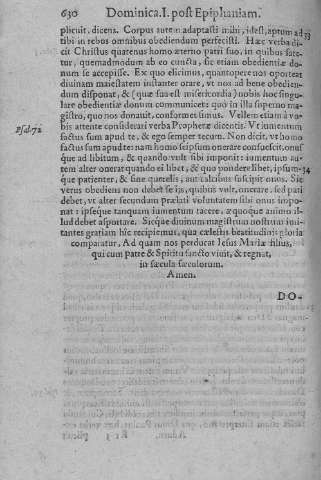 630 Dominica. I. post Epiphaniam.
plicuit, dicens. Corpus autem adaptasti mihi, idest, aptum ad 33
tibi in rebus omnibus obediendum perfecisti. Hæc verba di-
cit Christus quatenus homo æterno patri suo, in quibus fate-
tur, quemadmodum ab eo cuncta, sic etiam obedientiæ do-
num se accepisse. Ex quo elicimus, quantopere nos oporteat
diuinam maiestatem instanter orare, vt nos ad bene obedien-
dum disponat, & (quæ sua est misericordia) nobis hoc singu-
lare obedientiæ donum communicet: quò in illa supremo ma-
gistro, quo nos donauit, conformet simus. Vellem etiam à vo-
Psal. 72 bis attente considerari verba Prophetæ dicentis. Vt iumentum
factus sum apud te, & ego semper tecum. Non dicit, vt homo
factus sum apud te: nam homo seipsum onerare consueuit, onus
que ad libitum, & quando vult sibi imponit: iumentum au-
tem alter onerat quando ei libet, & quo pondere libet, ipsum- 34
que patienter, & sine querelis, aut calcibus suscipit onus. Sic
verus obediens non debet se in, quibus vult, onerare, sed pati
debet, vt alter secundum prælati voluntatem sibi onus impo-
nat: ipseque tanquam iumentum tacere, æquoque animo il-
lud debet asportare. Sicque diuinum magistrum nostrum imi-
tantes gratiam hîc recipiemus, qua cælestis beatitudinis gloria
comparatur, Ad quam nos perducat Iesus Mariæ filius,
qui cum patre & Spiritu sancto viuit, & regnat,
in sæcula sæculorum.
Amen.
DO-